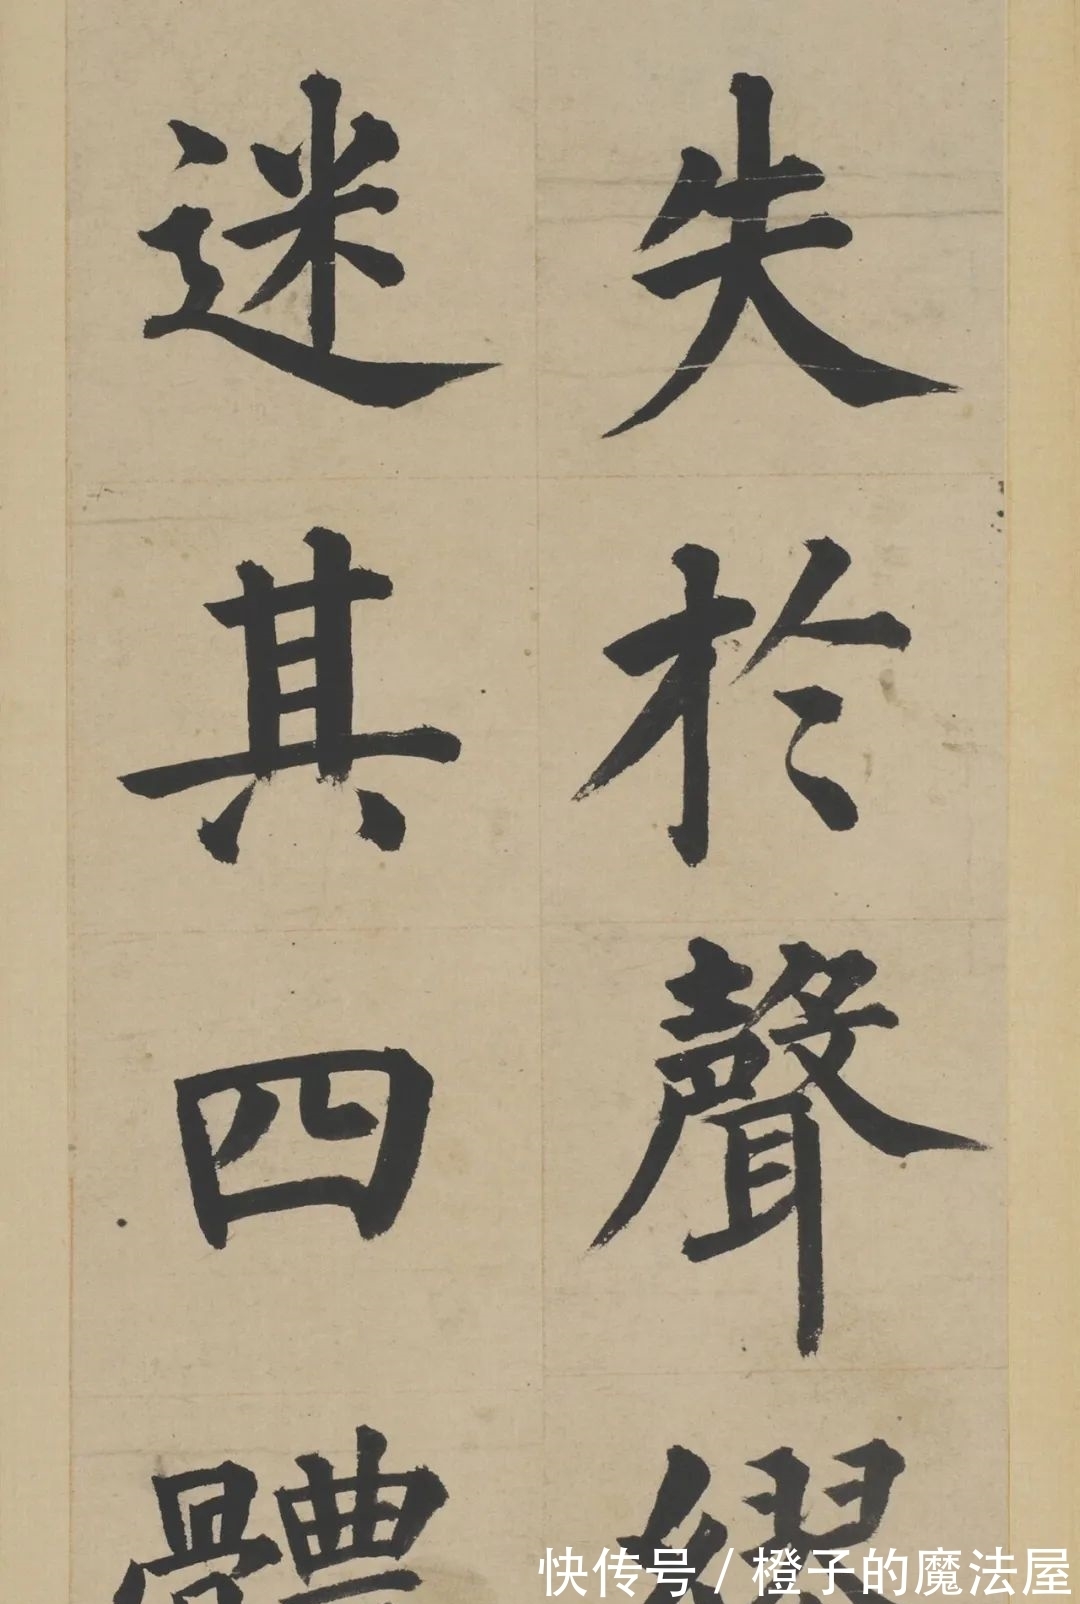 失於聲繆
迷其四體
快传号 / 橙子的魔法屋